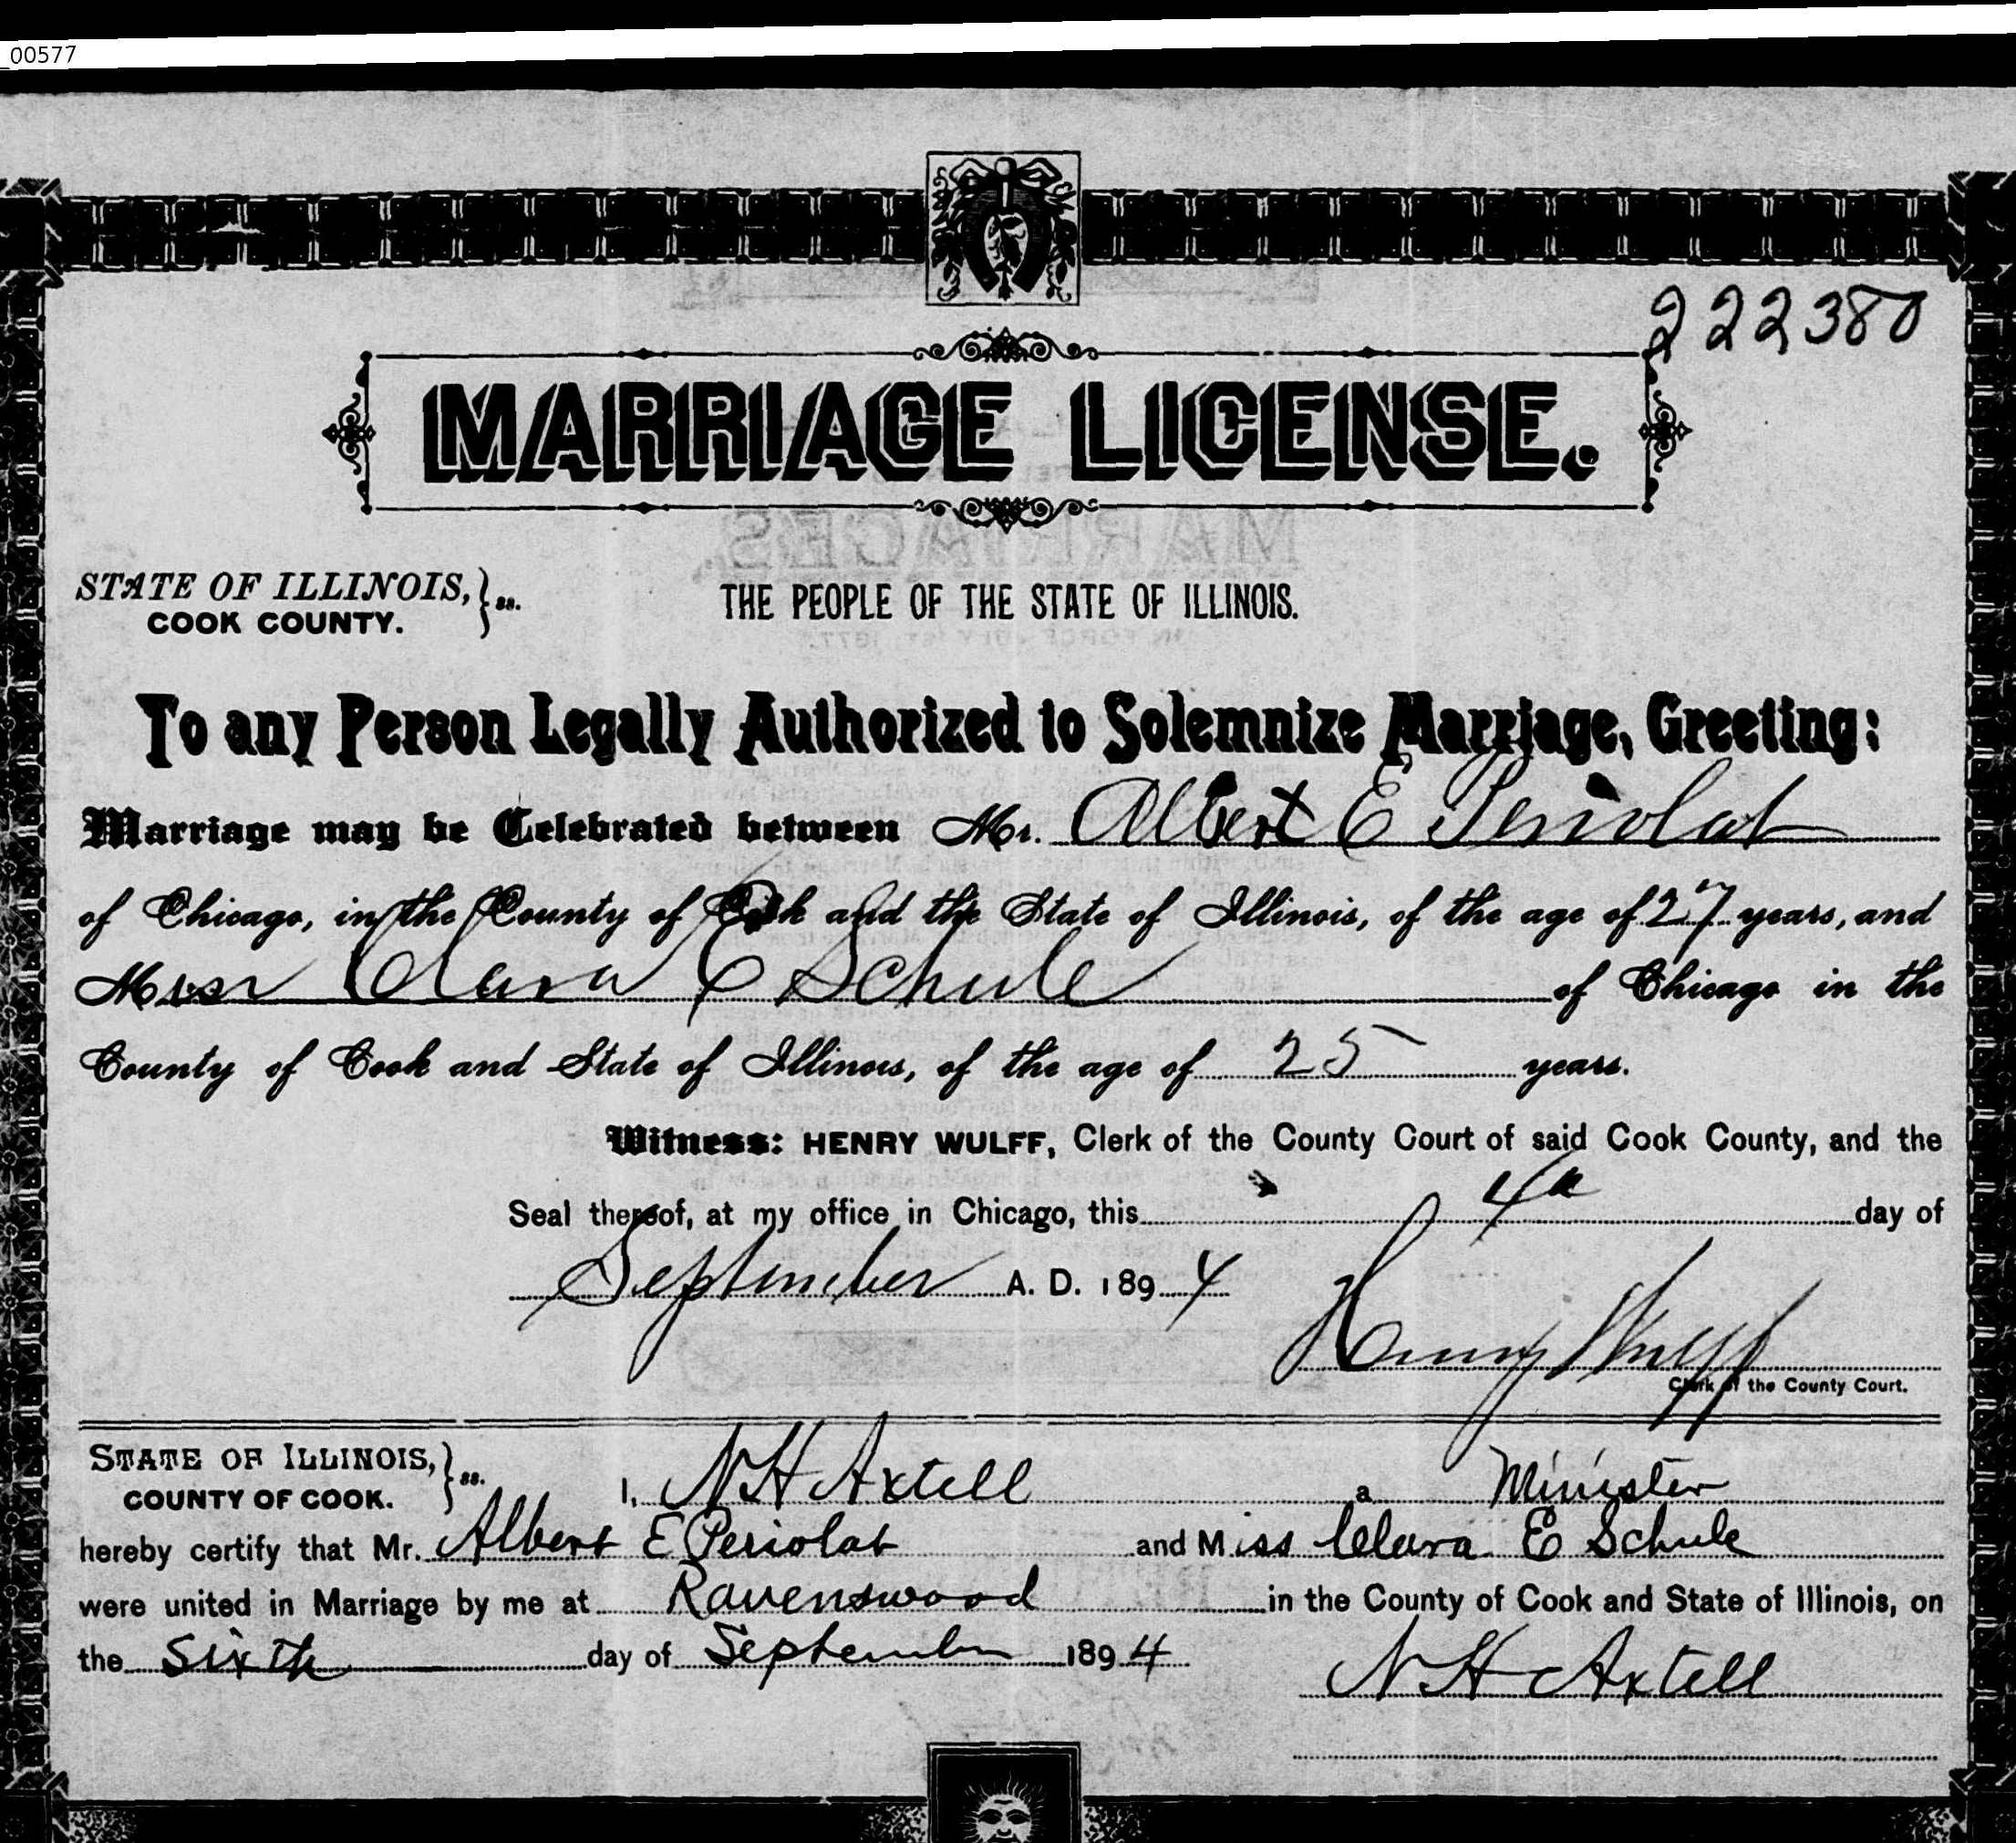 _00577
222380
MARRIAGE LICENSE.
STATE OF ILLINOIS, } ss.
COOK COUNTY.
THE PEOPLE OF THE STATE OF ILLINOIS.
To any Person Legally Authorized to Solemnize Marriage, Greeting:
Marriage may be Celebrated between Mr. Albert E Periolat
of Chicago, in the County of Cook and the State of Illinois, of the age of 27 years, and
Miss Clara E Schule of Chicago in the
County of Cook and State of Illinois, of the age of 25 years.
Witness: HENRY WULFF, Clerk of the County Court of said Cook County, and the
Seal thereof, at my office in Chicago, this 4th day of
September A. D. 1894
Henry Wulff
Clerk of the County Court.
STATE OF ILLINOIS, } ss.
COUNTY OF COOK.
I, N H Axtell a Minister
hereby certify that Mr. Albert E Periolat and Miss Clara E Schule
were united in Marriage by me at Ravenswood in the County of Cook and State of Illinois, on
the Sixth day of September 1894
N H Axtell